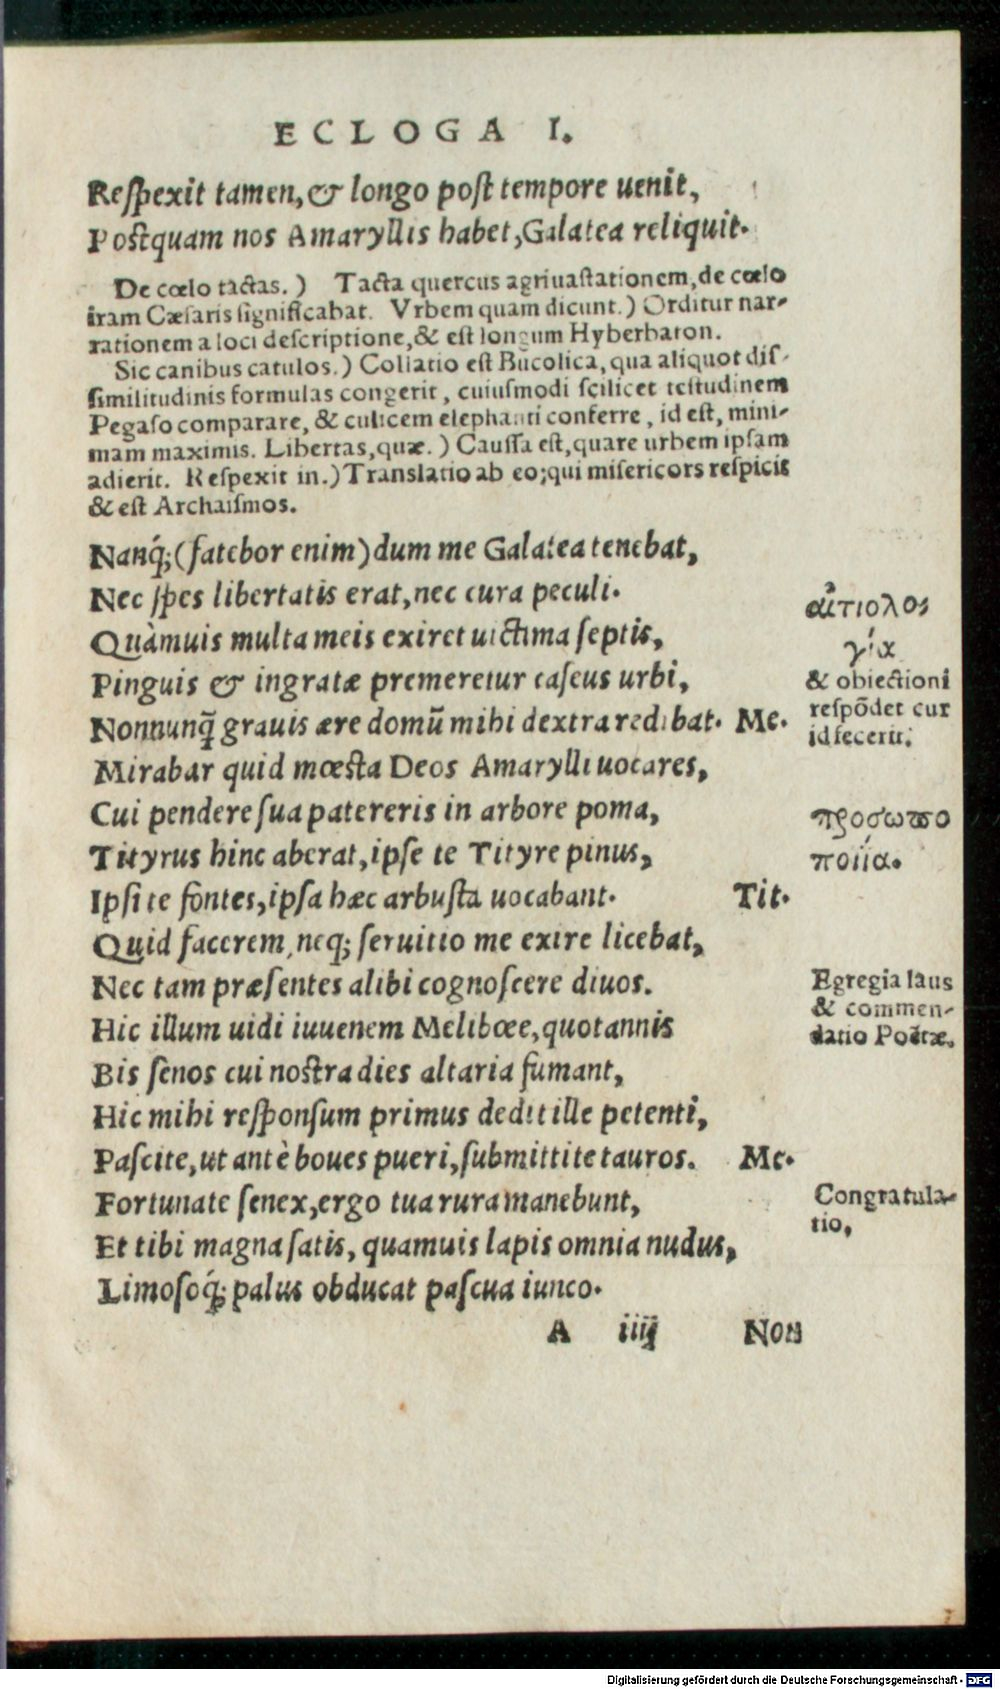 ECLOGA I.
Reſpexit tamen, & longo poſt tempore uenit,
Poſtquam nos Amaryllis habet, Galatea reliquit.
De cœlo tactas.) Tacta quercus agriuaſtationem, de cœlo
iram Cæſaris ſignificabat. Vrbem quam dicunt.) Orditur nar-
rationem a loci deſcriptione, & eſt longum Hyberbaton.
Sic canibus catulos.) Collatio eſt Bucolica, qua aliquot diſ-
ſimilitudinis formulas congerit, cuiuſmodi ſcilicet teſtudinem
Pegaſo comparare, & culicem elephanti conferre, id eſt, mini-
mam maximis. Libertas, quæ.) Cauſſa eſt, quare urbem ipſam
adierit. Reſpexit in.) Translatio ab eo; qui miſericors reſpicit
& eſt Archaiſmos.
Nanq́; (fatebor enim) dum me Galatea tenebat,
Nec ſpes libertatis erat, nec cura peculi.
Quàmuis multa meis exiret uictima ſeptis,
Pinguis & ingratæ premeretur caſeus urbi,
Nonnunq̃ grauis ære domũ mihi dextra redibat. Me.
Mirabar quid mœſta Deos Amarylli uocares,
Cui pendere ſua patereris in arbore poma,
Tityrus hinc aberat, ipſe te Tityre pinus,
Ipſi te fontes, ipſa hæc arbuſta uocabant. Tit.
Quid facerem, neq; ſeruitio me exire licebat,
Nec tam præſentes alibi cognoſcere diuos.
Hic illum uidi iuuenem Melibœe, quotannis
Bis ſenos cui noſtra dies altaria fumant,
Hic mihi reſponſum primus dedit ille petenti,
Paſcite, ut antè boues pueri, ſubmittite tauros. Me.
Fortunate ſenex, ergo tua rura manebunt,
Et tibi magna ſatis, quamuis lapis omnia nudus,
Limoſoq́; palus obducat paſcua iunco.
A iiij Non
αἰτιολο
γία
& obiectioni
reſpõdet cur
id fecerit.
προσωπο
ποιία.
Egregia laus
& commen-
datio Poëtæ.
Congratula-
tio,
Digitalisierung gefördert durch die Deutsche Forschungsgemeinschaft - DFG